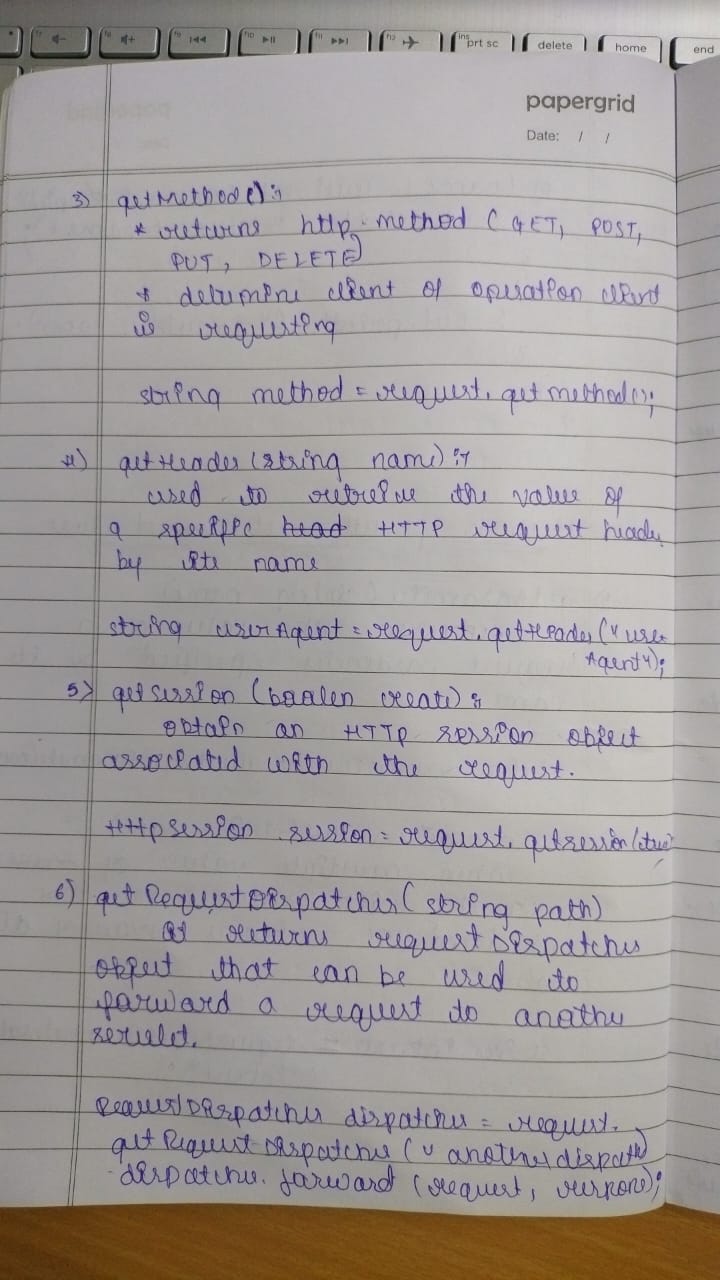 prt sc
delete
home
end
papergrid
Date: / /
3) getMethod():
* returns http method (GET, POST,
PUT, DELETE)
* determine client of operation client
is requesting
string method = request. getmethod();
4) getHeader (string name):
used to retrieve the value of
a specific head HTTP request header
by its name
string userAgent = request. getHeader("user
Agent");
5) getsession (boolen create):
obtain an HTTP session object
associated with the request.
HttpSession session = request. getsession(true)
6) getRequestDispatcher (string path)
returns requestDispatcher
object that can be used to
forward a request to another
servlet.
RequestDispatcher dispatcher = request.
getRequestDispatcher (" another dispath)
dispatcher. forward (request, response);